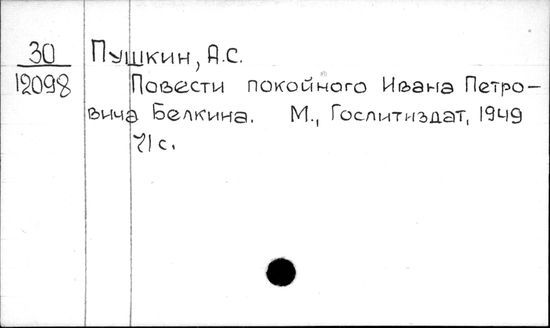 30 Пушкин, А.С.
12098 Повести покойного Ивана Петро-
вича Белкина. М., Гослитиздат, 1949
71 с.